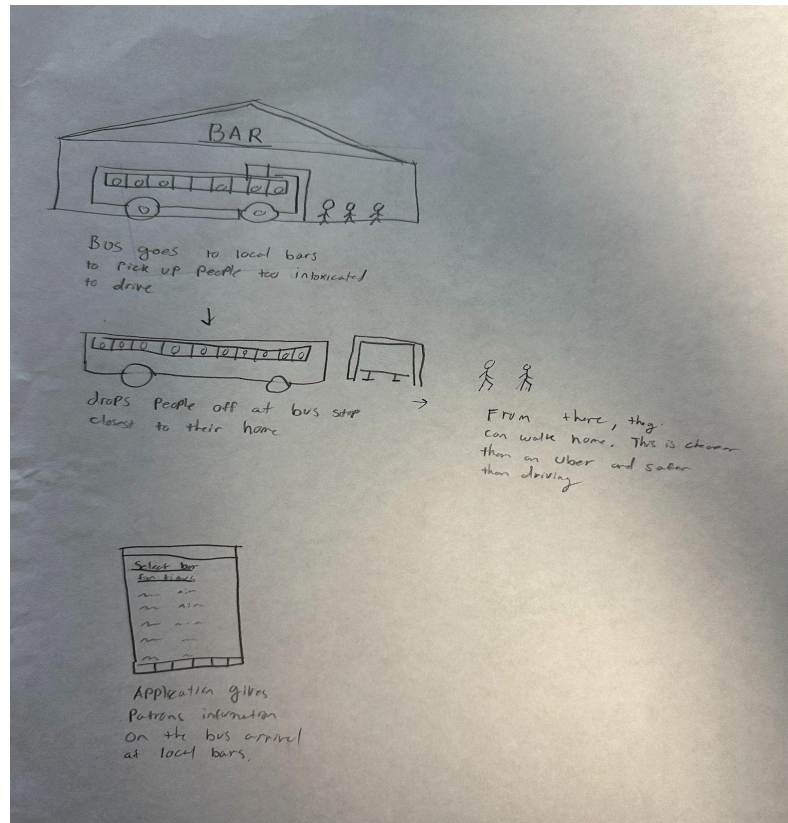 BAR
Bus goes to local bars
to Pick up people too intoxicated
to drive
drops People off at bus stop
closest to their home
From there, they
can walk home. This is cheaper
than an Uber and safer
than driving
Select bar
for times
Application gives
Patrons information
on the bus arrival
at local bars.